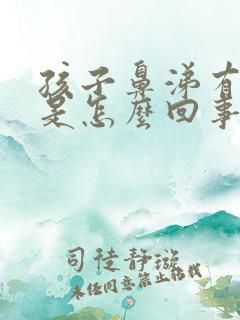 孩子鼻涕有
是怎麼回事
司徒靜璇
未经同意禁止转载